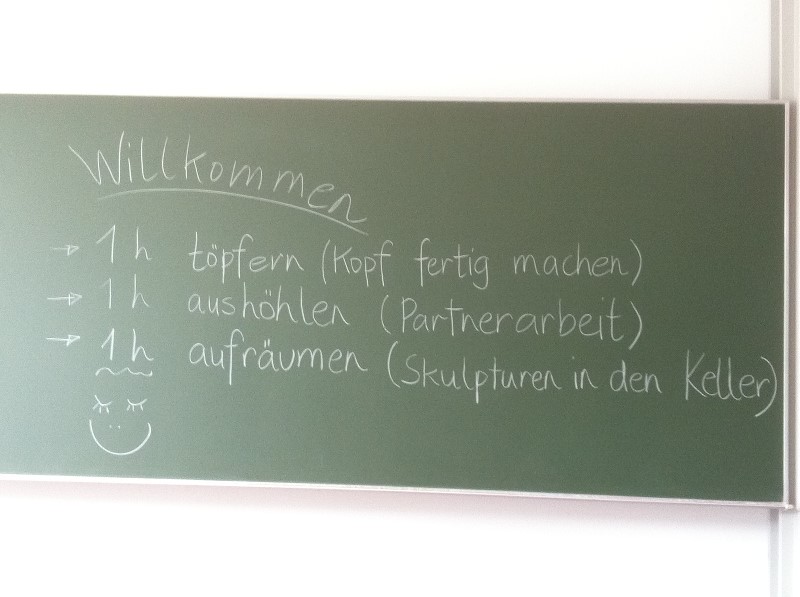 Willkommen
→ 1 h töpfern (Kopf fertig machen)
→ 1 h aushöhlen (Partnerarbeit)
→ 1 h aufräumen (Skulpturen in den Keller)